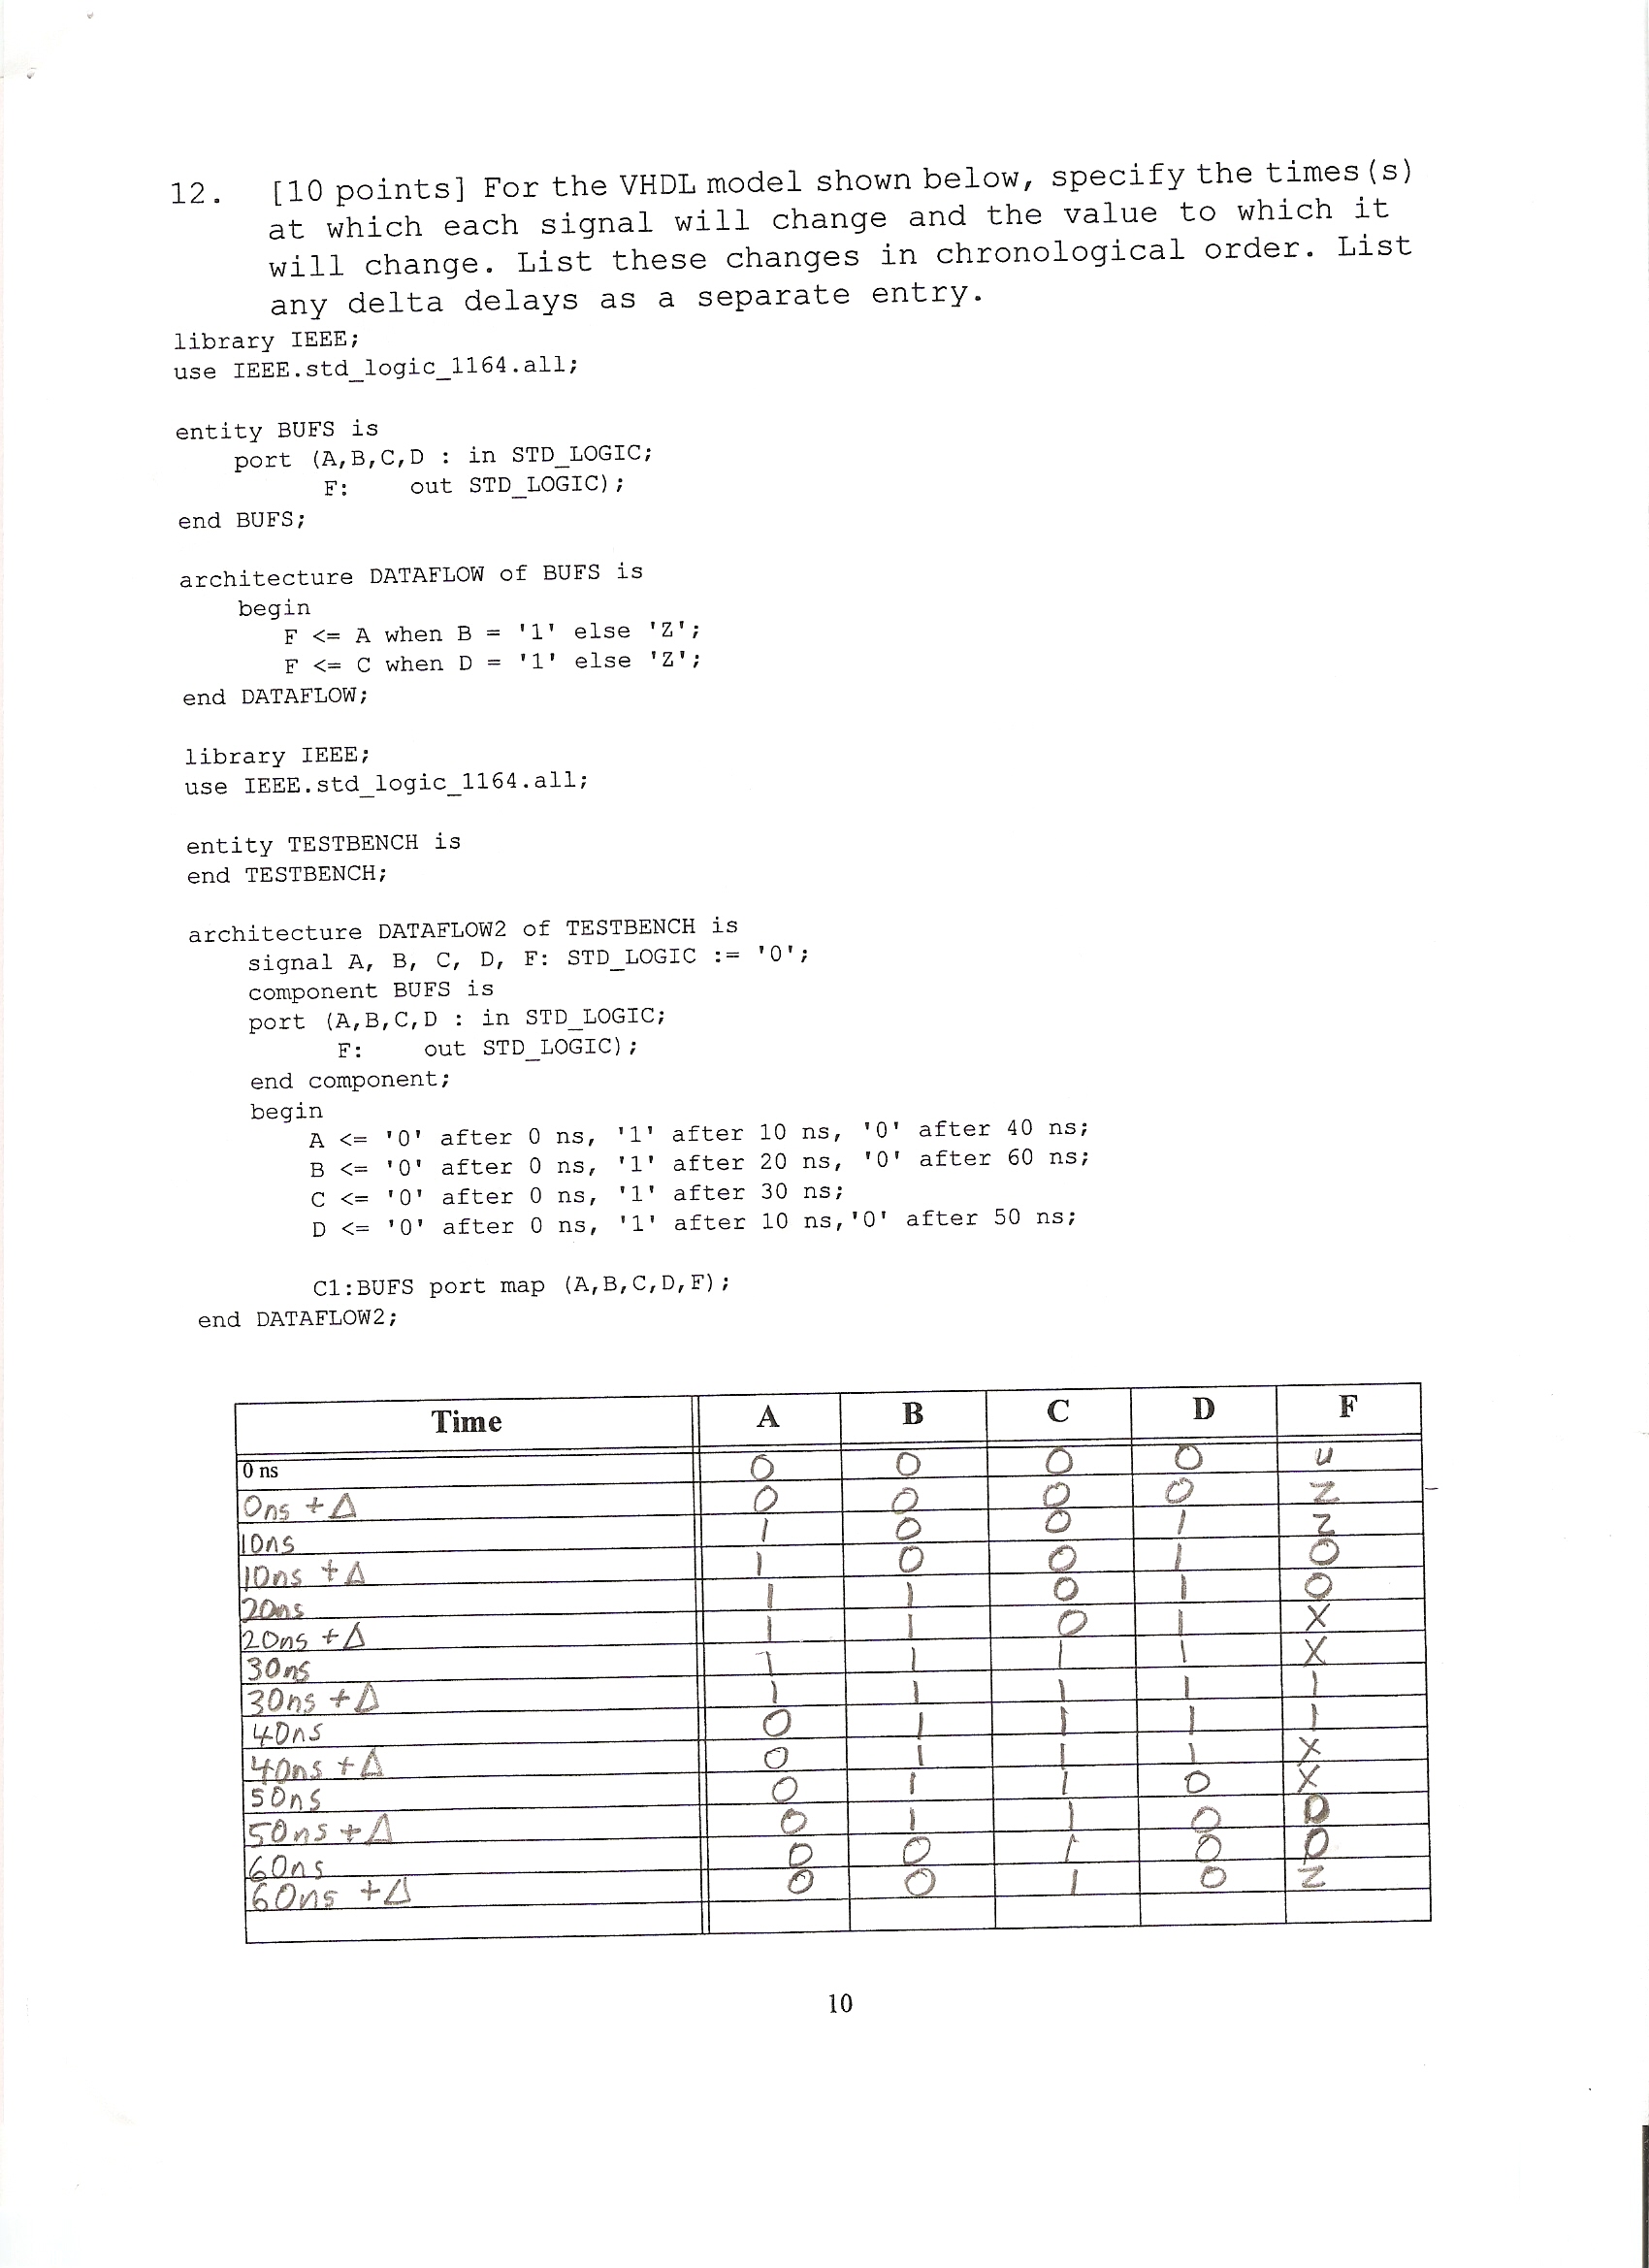 12. [10 points] For the VHDL model shown below, specify the times(s)
at which each signal will change and the value to which it
will change. List these changes in chronological order. List
any delta delays as a separate entry.
library IEEE;
use IEEE.std_logic_1164.all;
entity BUFS is
port (A,B,C,D : in STD_LOGIC;
F: out STD_LOGIC);
end BUFS;
architecture DATAFLOW of BUFS is
begin
F <= A when B = '1' else 'Z';
F <= C when D = '1' else 'Z';
end DATAFLOW;
library IEEE;
use IEEE.std_logic_1164.all;
entity TESTBENCH is
end TESTBENCH;
architecture DATAFLOW2 of TESTBENCH is
signal A, B, C, D, F: STD_LOGIC := '0';
component BUFS is
port (A,B,C,D : in STD_LOGIC;
F: out STD_LOGIC);
end component;
begin
A <= '0' after 0 ns, '1' after 10 ns, '0' after 40 ns;
B <= '0' after 0 ns, '1' after 20 ns, '0' after 60 ns;
C <= '0' after 0 ns, '1' after 30 ns;
D <= '0' after 0 ns, '1' after 10 ns,'0' after 50 ns;
C1:BUFS port map (A,B,C,D,F);
end DATAFLOW2;
Time A B C D F
0 ns 0 0 0 0 u
0ns + Δ 0 0 0 0 Z
10ns 1 0 0 1 Z
10ns + Δ 1 0 0 1 0
20ns 1 1 0 1 0
20ns + Δ 1 1 0 1 X
30ns 1 1 1 1 X
30ns + Δ 1 1 1 1 1
40ns 0 1 1 1 1
40ns + Δ 0 1 1 1 X
50ns 0 1 1 0 X
50ns + Δ 0 1 1 0 0
60ns 0 0 1 0 0
60ns + Δ 0 0 1 0 Z
10